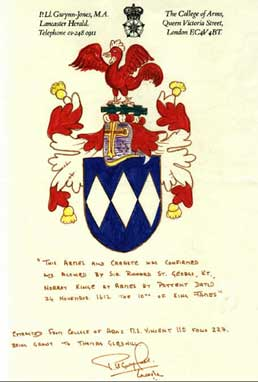 P.Ll. Gwynn-Jones, M.A.
Lancaster Herald.
Telephone 01-248 0911
The College of Arms,
Queen Victoria Street,
London EC4V 4BT.
"This Armes and Creaste was confirmed
and allowed by Sir Richard St. George, Kt.,
Norroy Kinge of Armes by Pattent Dated
24 November 1612 the 10th of King James"
Extracted from College of Arms MS. Vincent 115 folio 227.
being grant to Thomas
Lancaster